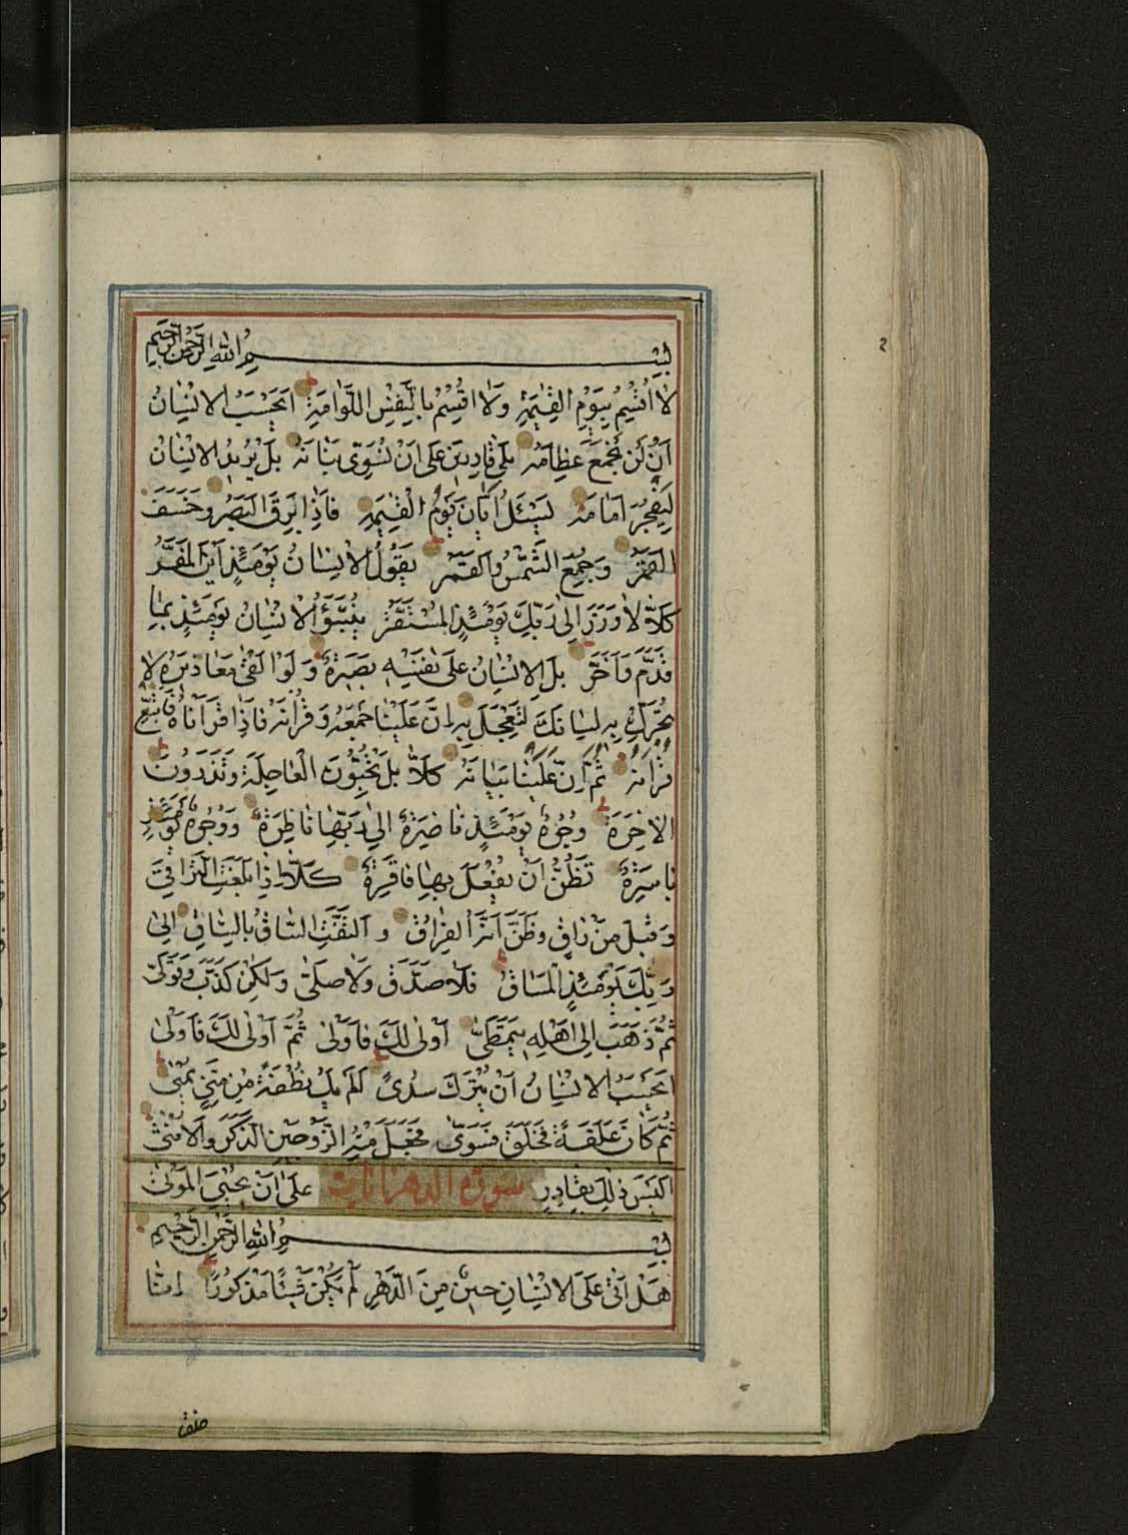 بِسْمِ اللهِ الرَّحْمٰنِ الرَّحِيمِ
لَا اُقْسِمُ بِيَوْمِ الْقِيٰمَةِ وَلَا اُقْسِمُ بِالنَّفْسِ اللَّوَّامَةِ اَيَحْسَبُ الْاِنْسَانُ
اَنْ لَنْ نَجْمَعَ عِظَامَهُ بَلٰى قَادِرِينَ عَلٰى اَنْ نُسَوِّىَ بَنَانَهُ بَلْ يُرِيدُ الْاِنْسَانُ
لِيَفْجُرَ اَمَامَهُ يَسْئَلُ اَيَّانَ يَوْمُ الْقِيٰمَةِ فَاِذَا بَرِقَ الْبَصَرُ وَخَسَفَ
الْقَمَرُ وَجُمِعَ الشَّمْسُ وَالْقَمَرُ يَقُولُ الْاِنْسَانُ يَوْمَئِذٍ اَيْنَ الْمَفَرُّ
كَلَّا لَا وَزَرَ اِلٰى رَبِّكَ يَوْمَئِذٍ الْمُسْتَقَرُّ يُنَبَّؤُ الْاِنْسَانُ يَوْمَئِذٍ بِمَا
قَدَّمَ وَاَخَّرَ بَلِ الْاِنْسَانُ عَلٰى نَفْسِهِ بَصِيرَةٌ وَلَوْ اَلْقٰى مَعَاذِيرَهُ لَا
تُحَرِّكْ بِهِ لِسَانَكَ لِتَعْجَلَ بِهِ اِنَّ عَلَيْنَا جَمْعَهُ وَقُرْاٰنَهُ فَاِذَا قَرَاْنَاهُ فَاتَّبِعْ
قُرْاٰنَهُ ثُمَّ اِنَّ عَلَيْنَا بَيَانَهُ كَلَّا بَلْ تُحِبُّونَ الْعَاجِلَةَ وَتَذَرُونَ
الْاٰخِرَةَ وُجُوهٌ يَوْمَئِذٍ نَاضِرَةٌ اِلٰى رَبِّهَا نَاظِرَةٌ وَوُجُوهٌ يَوْمَئِذٍ
بَاسِرَةٌ تَظُنُّ اَنْ يُفْعَلَ بِهَا فَاقِرَةٌ كَلَّا اِذَا بَلَغَتِ التَّرَاقِىَ
وَقِيلَ مَنْ رَاقٍ وَظَنَّ اَنَّهُ الْفِرَاقُ وَالْتَفَّتِ السَّاقُ بِالسَّاقِ اِلٰى
رَبِّكَ يَوْمَئِذٍ الْمَسَاقُ فَلَا صَدَّقَ وَلَا صَلّٰى وَلٰكِنْ كَذَّبَ وَتَوَلّٰى
ثُمَّ ذَهَبَ اِلٰى اَهْلِهِ يَتَمَطّٰى اَوْلٰى لَكَ فَاَوْلٰى ثُمَّ اَوْلٰى لَكَ فَاَوْلٰى
اَيَحْسَبُ الْاِنْسَانُ اَنْ يُتْرَكَ سُدًى اَلَمْ يَكُ نُطْفَةً مِنْ مَنِىٍّ يُمْنٰى
ثُمَّ كَانَ عَلَقَةً فَخَلَقَ فَسَوّٰى فَجَعَلَ مِنْهُ الزَّوْجَيْنِ الذَّكَرَ وَالْاُنْثٰى
اَلَيْسَ ذٰلِكَ بِقَادِرٍ سورة الدهر عَلٰى اَنْ يُحْيِىَ الْمَوْتٰى
بِسْمِ اللهِ الرَّحْمٰنِ الرَّحِيمِ
هَلْ اَتٰى عَلَى الْاِنْسَانِ حِينٌ مِنَ الدَّهْرِ لَمْ يَكُنْ شَيْئًا مَذْكُورًا اِنَّا
خلقنا